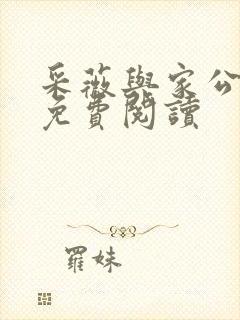 采薇與家公
免費閱讀
羅妹